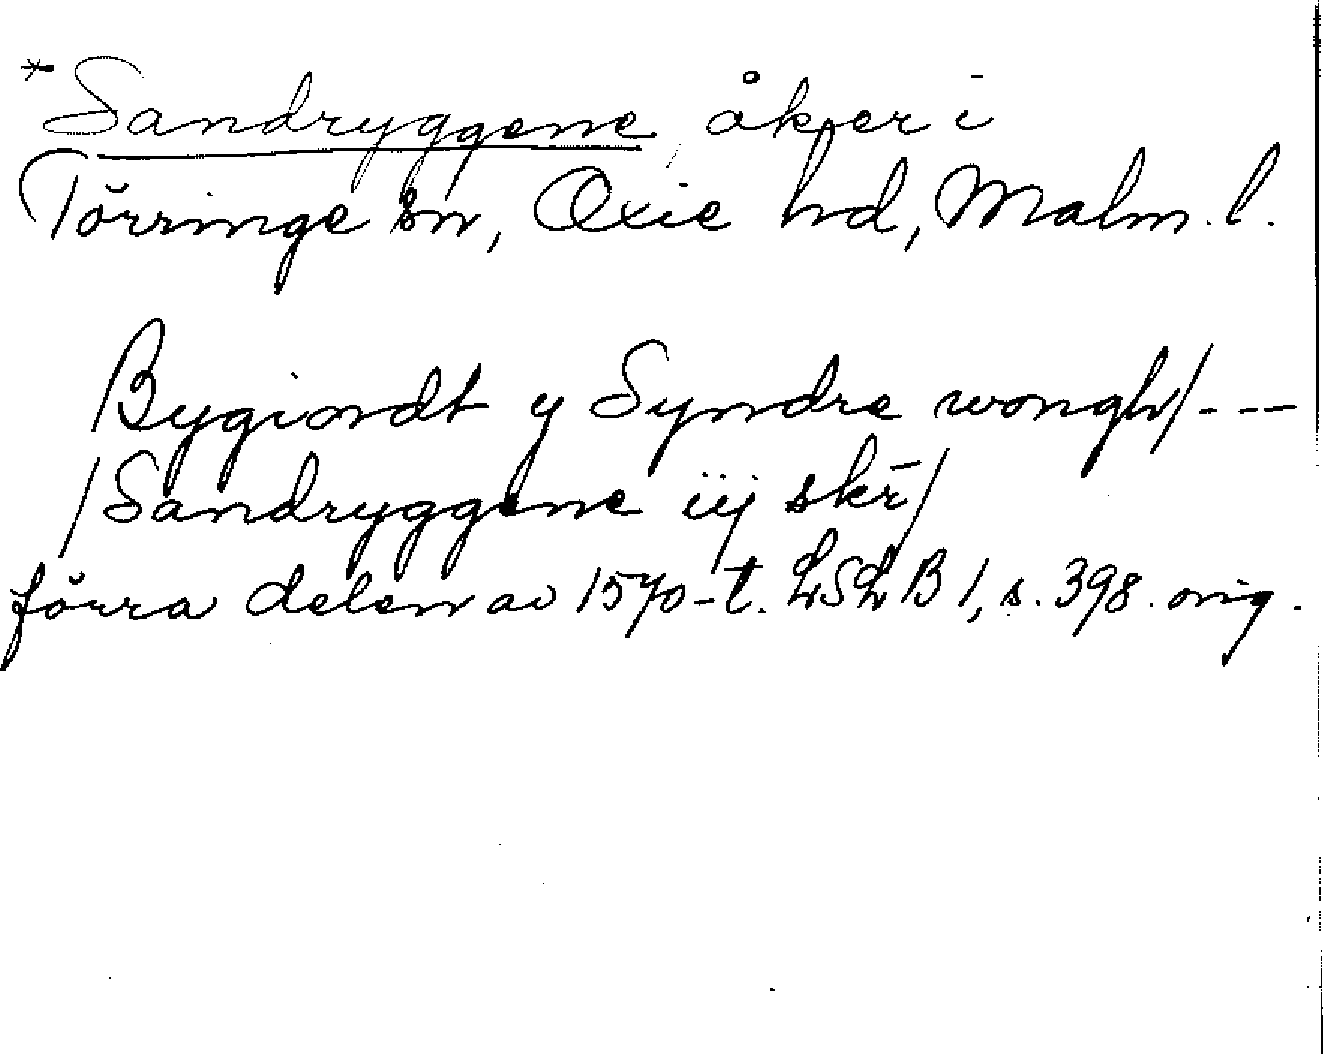 *Sandryggene, åker i
Törringe sn, Oxie hd, Malm. l.
Bygiordt y Syndre wongh/---
/Sandryggene iij skr̄/
förra delen av 1570-t. LSLB 1, s. 398. orig.